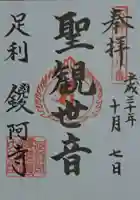 奉拝
平成三十年
十月七日
聖観世音
足利
鑁阿寺